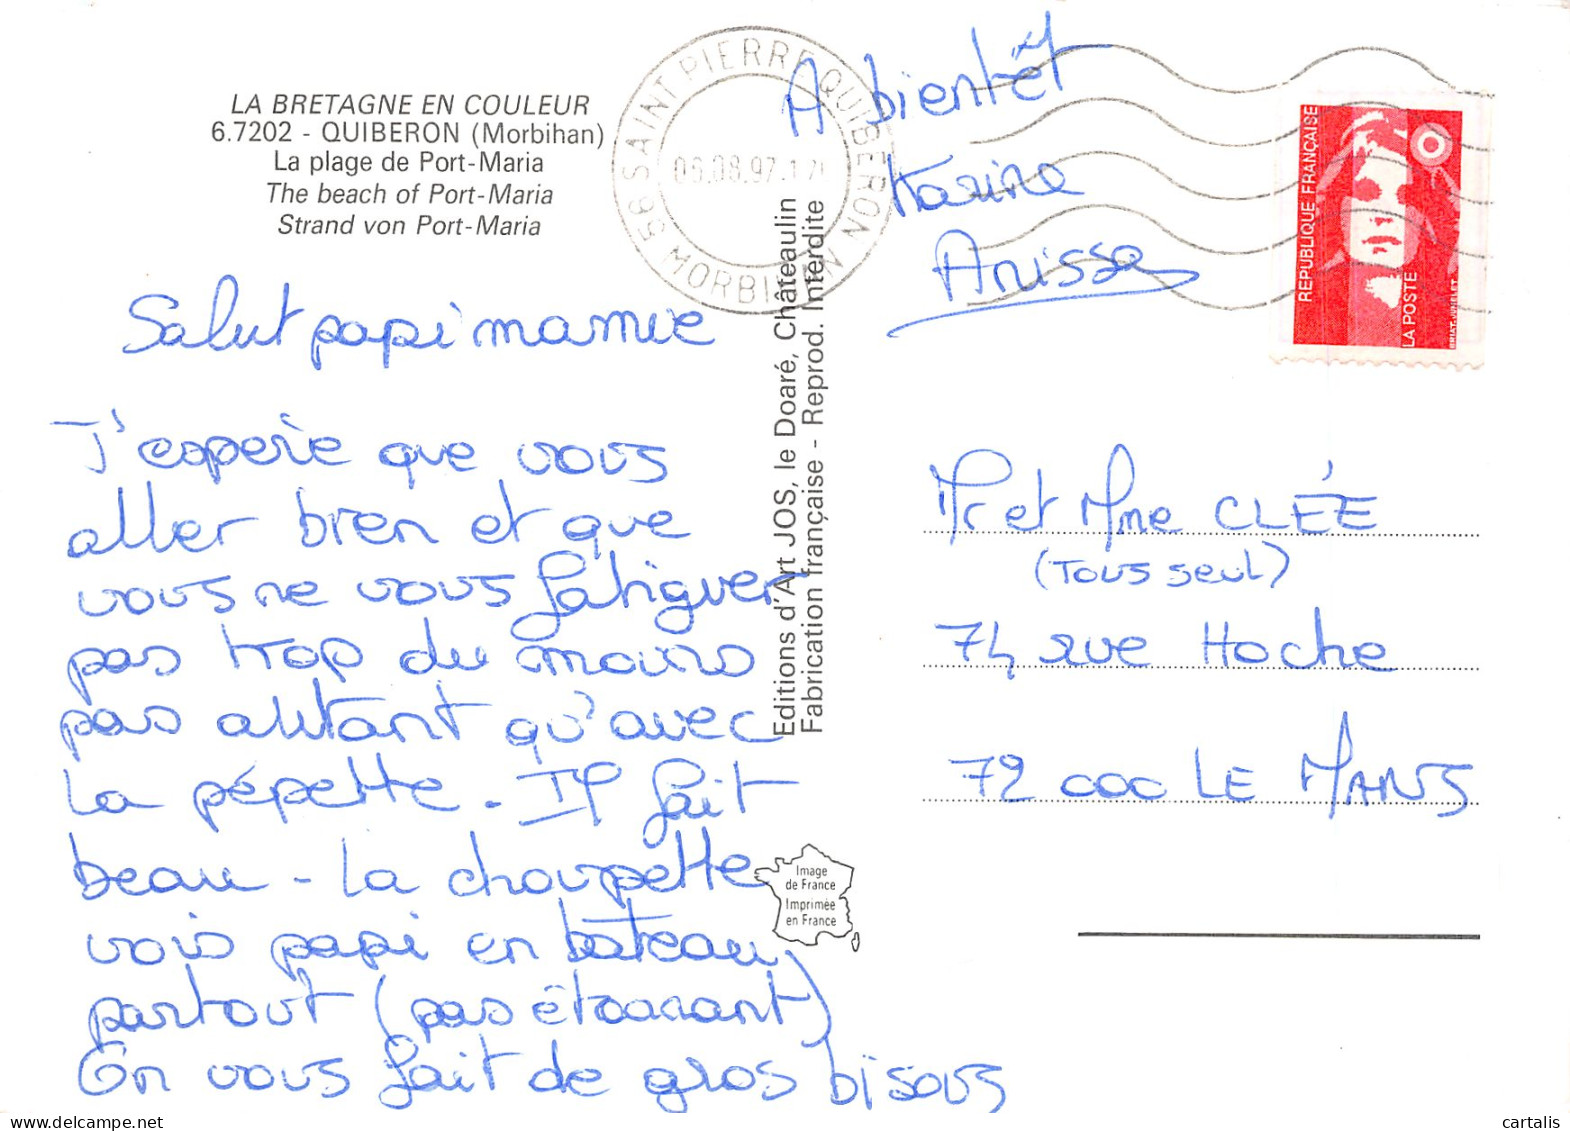 LA BRETAGNE EN COULEUR
6.7202 - QUIBERON (Morbihan)
La plage de Port-Maria
The beach of Port-Maria
Strand von Port-Maria
56 SAINT PIERRE QUIBERON MORBIHAN
06.08.97.17
Salut papi mamie
J'esperie que vous
aller bien et que
vous ne vous fatiguer
pas trop du moins
pas autant qu'avec
la pépette. Il fait
beau - la choupette
vois papi en bateau
partout (pas étonnant)
On vous fait de gros bisous
A bientêt
Karine
Anissa
Editions d'Art JOS, le Doaré, Châteaulin
Fabrication française - Reprod. Interdite
REPUBLIQUE FRANÇAISE
LA POSTE
BRIAT-JUMELET
Mr et Mme CLÉE
(Tous seul)
74 rue Hoche
72 000 LE MANS
Image
de France
Imprimée
en France
cartalis
delcampe.net